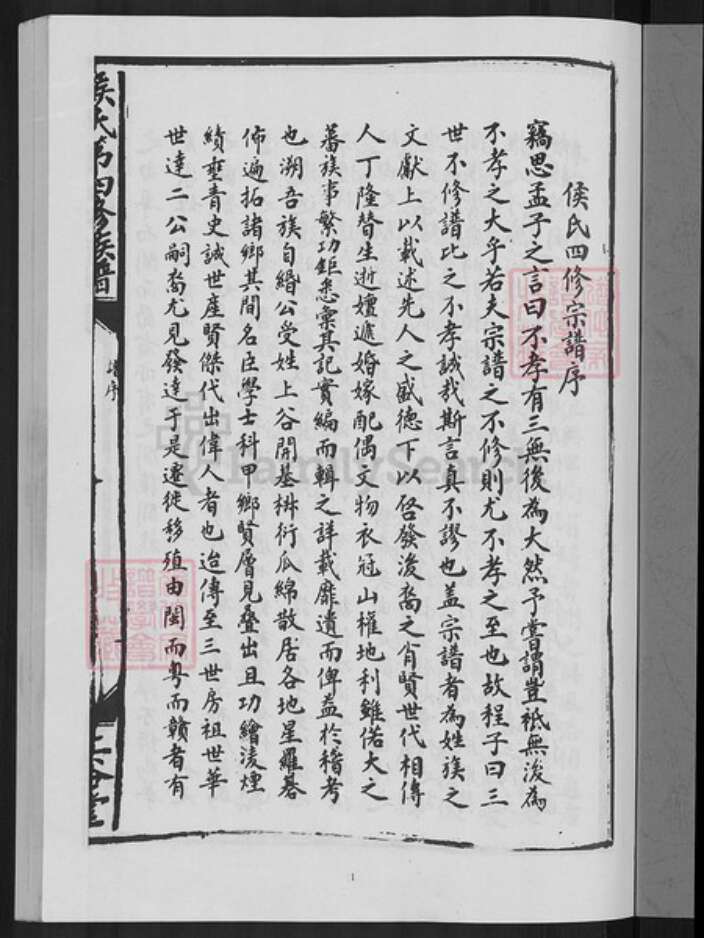 侯氏四修宗譜序
竊思孟子之言曰不孝有三無後為大然予嘗謂豈祗無後為
不孝之大乎若夫宗譜之不修則尤不孝之至也故程子曰三
世不修譜比之不孝誠哉斯言真不謬也蓋宗譜者為姓族之
文獻上以載述先人之盛德下以啓發後裔之肖賢世代相傳
人丁隆替生逝嬗遞婚嫁配偶文物衣冠山權地利雖偌大之
蕃族事繁功鉅悉彙其記實編而輯之詳載靡遺而俾益於稽考
也溯吾族自緡公受姓上谷開基椒衍瓜綿散居各地星羅碁
佈遍拓諸鄉其間名臣學士科甲鄉賢層見叠出且功繪凌煙
績垂青史誠世產賢傑代出偉人者也迨傳至三世房祖世華
世達二公嗣裔尤見發達于是遷徙移殖由閩而粵而贛者有
侯氏第四修族譜
增序
三公堂
FamilySearch
1